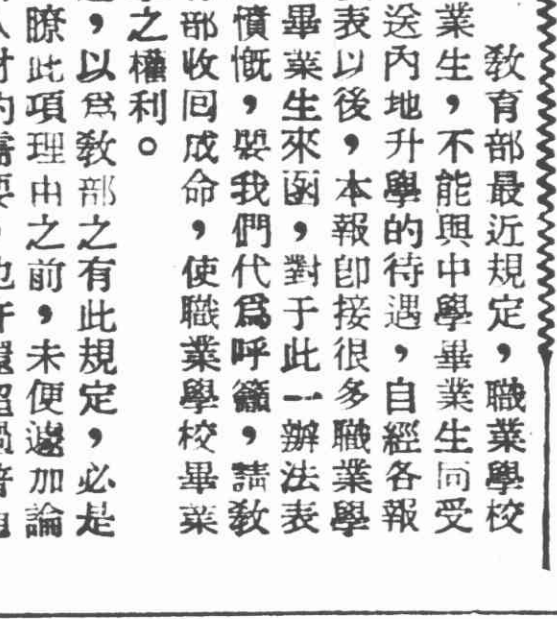 教育部最近規定，職業學校
業生，不能與中學畢業生同受
送內地升學的待遇，自經各報
表以後，本報卽接很多職業學
畢業生來函，對于此一辦法表
憤慨，嬰我們代爲呼籲，請教
部收回成命，使職業學校畢業
之權利。
，以爲教部之有此規定，必是
瞭此項理由之前，未便遽加論